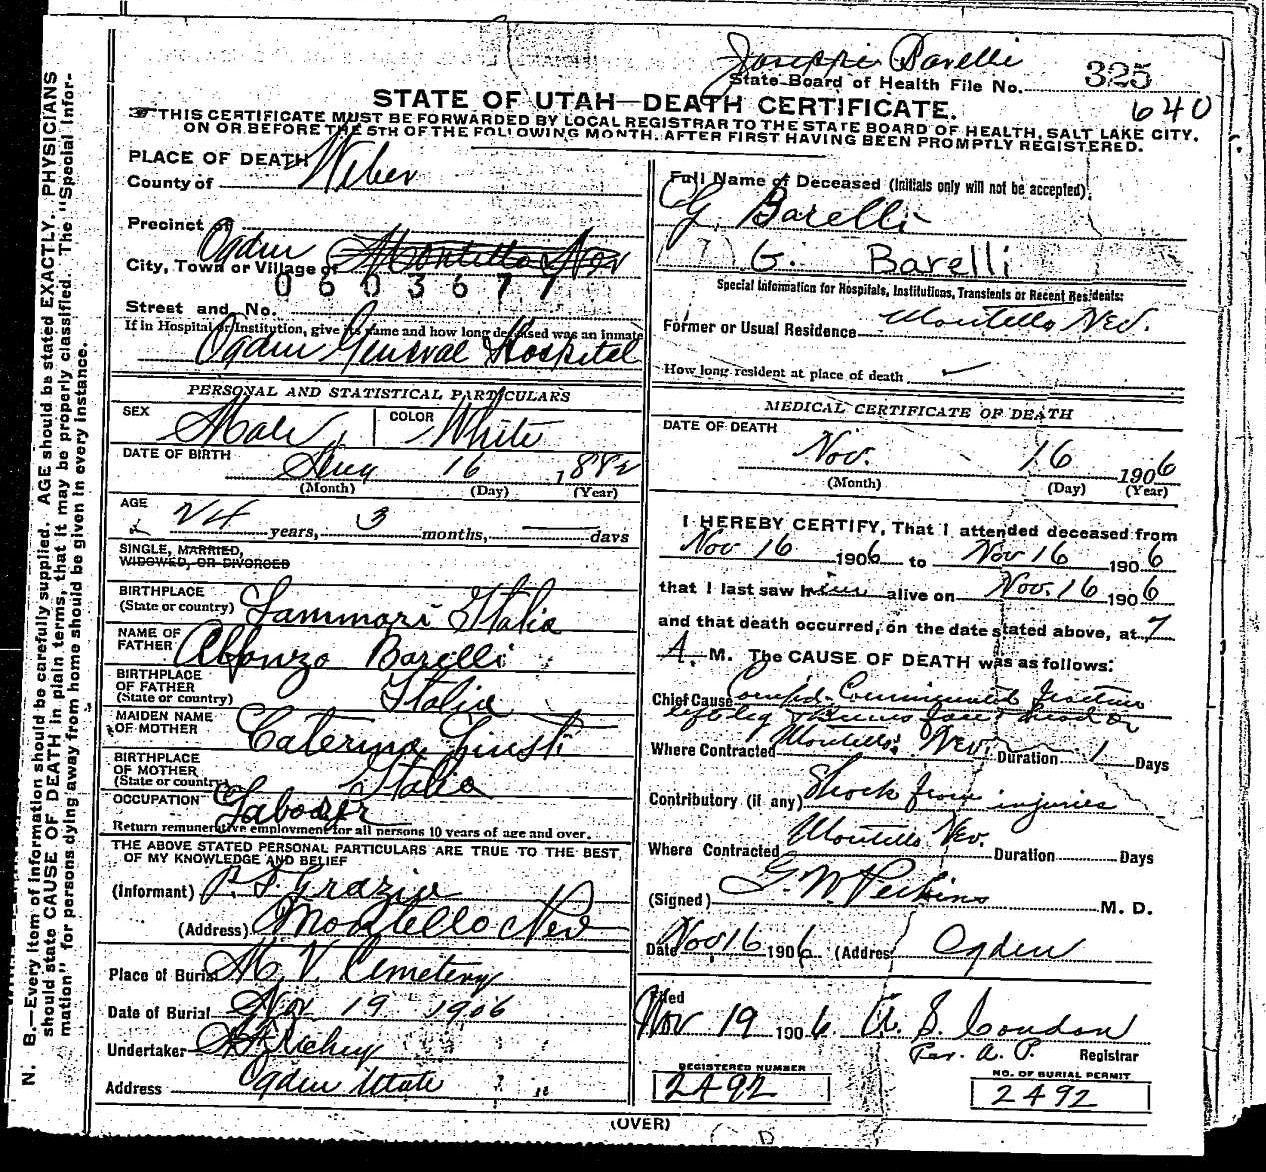 Joseppi Barelli
State Board of Health File No. 325
640
STATE OF UTAH—DEATH CERTIFICATE.
THIS CERTIFICATE MUST BE FORWARDED BY LOCAL REGISTRAR TO THE STATE BOARD OF HEALTH, SALT LAKE CITY,
ON OR BEFORE THE 5TH OF THE FOLLOWING MONTH, AFTER FIRST HAVING BEEN PROMPTLY REGISTERED.
PLACE OF DEATH
County of Weber
Precinct of
City, Town or Village of Ogden Montello Nev
0603677
Street and No.
If in Hospital or Institution, give its name and how long deceased was an inmate
Ogden General Hospital
PERSONAL AND STATISTICAL PARTICULARS
SEX Male COLOR White
DATE OF BIRTH Aug 16 1882
(Month) (Day) (Year)
AGE 24 years, 3 months, days
SINGLE, MARRIED,
WIDOWED, OR DIVORCED
BIRTHPLACE
(State or country) Lammari Italia
NAME OF
FATHER Alfonzo Barelli
BIRTHPLACE
OF FATHER
(State or country) Italia
MAIDEN NAME
OF MOTHER Caterina Giusti
BIRTHPLACE
OF MOTHER
(State or country) Italia
OCCUPATION Laborer
Return remunerative employment for all persons 10 years of age and over.
THE ABOVE STATED PERSONAL PARTICULARS ARE TRUE TO THE BEST
OF MY KNOWLEDGE AND BELIEF
(Informant) Grazie
(Address) Montello Nev
Place of Burial M. V. Cemetery
Date of Burial Nov 19 1906
Undertaker Richey
Address Ogden Utah
Full Name of Deceased (Initials only will not be accepted).
G. Barelli
G. Barelli
Special Information for Hospitals, Institutions, Transients or Recent Residents:
Former or Usual Residence Montello Nev.
How long resident at place of death
MEDICAL CERTIFICATE OF DEATH
DATE OF DEATH
Nov. 16 1906
(Month) (Day) (Year)
I HEREBY CERTIFY, That I attended deceased from
Nov 16 1906 to Nov 16 1906
that I last saw him alive on Nov. 16 1906
and that death occurred, on the date stated above, at 7
A. M. The CAUSE OF DEATH was as follows:
Chief Cause Compd. Comminuted fracture
left leg
Where Contracted Montello Nev. Duration 1 Days
Contributory (if any) Shock from injuries
Where Contracted Montello Nev. Duration Days
(Signed) G. W. Perkins M. D.
Date Nov 16 1906 (Address Ogden
Filed
Nov 19 1906 A. S. Condon
Per. A. P. Registrar
REGISTERED NUMBER
2492
NO. OF BURIAL PERMIT
2492
(OVER)
N. B.—Every item of information should be carefully supplied. AGE should be stated EXACTLY. PHYSICIANS
should state CAUSE OF DEATH in plain terms, that it may be properly classified. The "Special Infor-
mation" for persons dying away from home should be given in every instance.